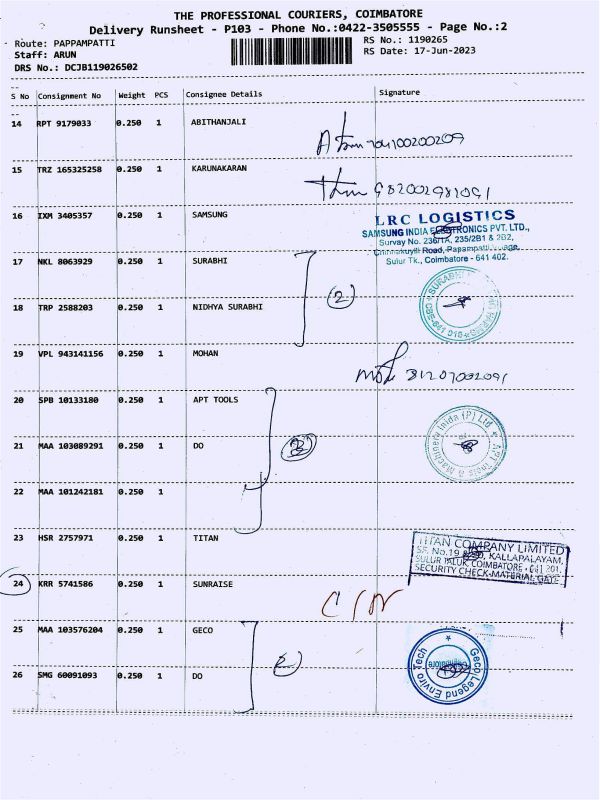 THE PROFESSIONAL COURIERS, COIMBATORE
Delivery Runsheet - P103 - Phone No.:0422-3505555 - Page No.:2
Route: PAPPAMPATTI RS No.: 1190265
Staff: ARUN RS Date: 17-Jun-2023
DRS No.: DCJB119026502
S No Consignment No Weight PCS Consignee Details Signature
14 RPT 9179033 0.250 1 ABITHANJALI
15 TRZ 165325258 0.250 1 KARUNAKARAN
16 IXM 3405357 0.250 1 SAMSUNG
LRC LOGISTICS
SAMSUNG INDIA ELECTRONICS PVT. LTD.,
Survay No. 236/1A, 235/2B1 & 2B2,
Road,
Sulur Tk., Coimbatore - 641 402.
17 NKL 8063929 0.250 1 SURABHI
2
18 TRP 2588203 0.250 1 NIDHYA SURABHI
19 VPL 943141156 0.250 1 MOHAN
20 SPB 10133180 0.250 1 APT TOOLS
21 MAA 103089291 0.250 1 DO
22 MAA 101242181 0.250 1
23 HSR 2757971 0.250 1 TITAN
TITAN COMPANY LIMITED
SF. No.19 KALLAPALAYAM,
SULUR TALUK, COIMBATORE - 641 201.
SECURITY CHECK-MATERIAL GATE
24 KRR 5741586 0.250 1 SUNRAISE
25 MAA 103576204 0.250 1 GECO
2
Geco Legend Enviro Tech
26 SMG 60091093 0.250 1 DO